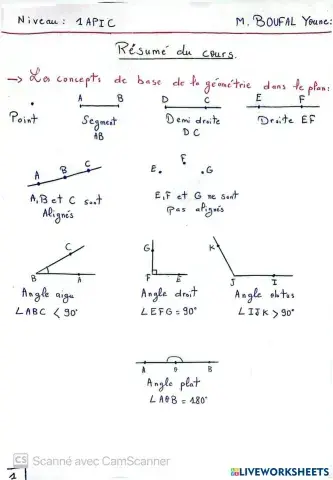 Niveau : 1APIC M. BOUFAL Youne
Résumé du cours.
→ Les concepts de base de la géométrie dans le plan:
A B D C E F
Point Segment Demi droite Droite EF
AB DC
A B C E. F .G
A, B et C sont E, F et G ne sont
Alignés pas alignés
C G K
B A F E J I
Angle aigu Angle droit Angle obtus
∠ABC < 90° ∠EFG = 90° ∠IJK > 90°
A θ B
Angle plat
∠AθB = 180°
CS Scanné avec CamScanner
1 LIVEWORKSHEETS